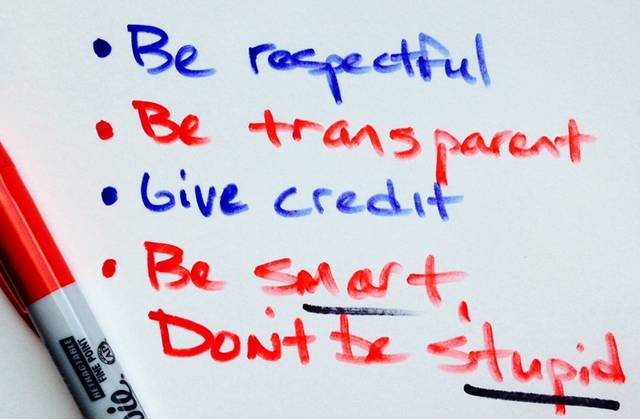 • Be respectful
• Be transparent
• Give credit
• Be smart.
Don't be stupid
RETRACTABLE
FINE POINT